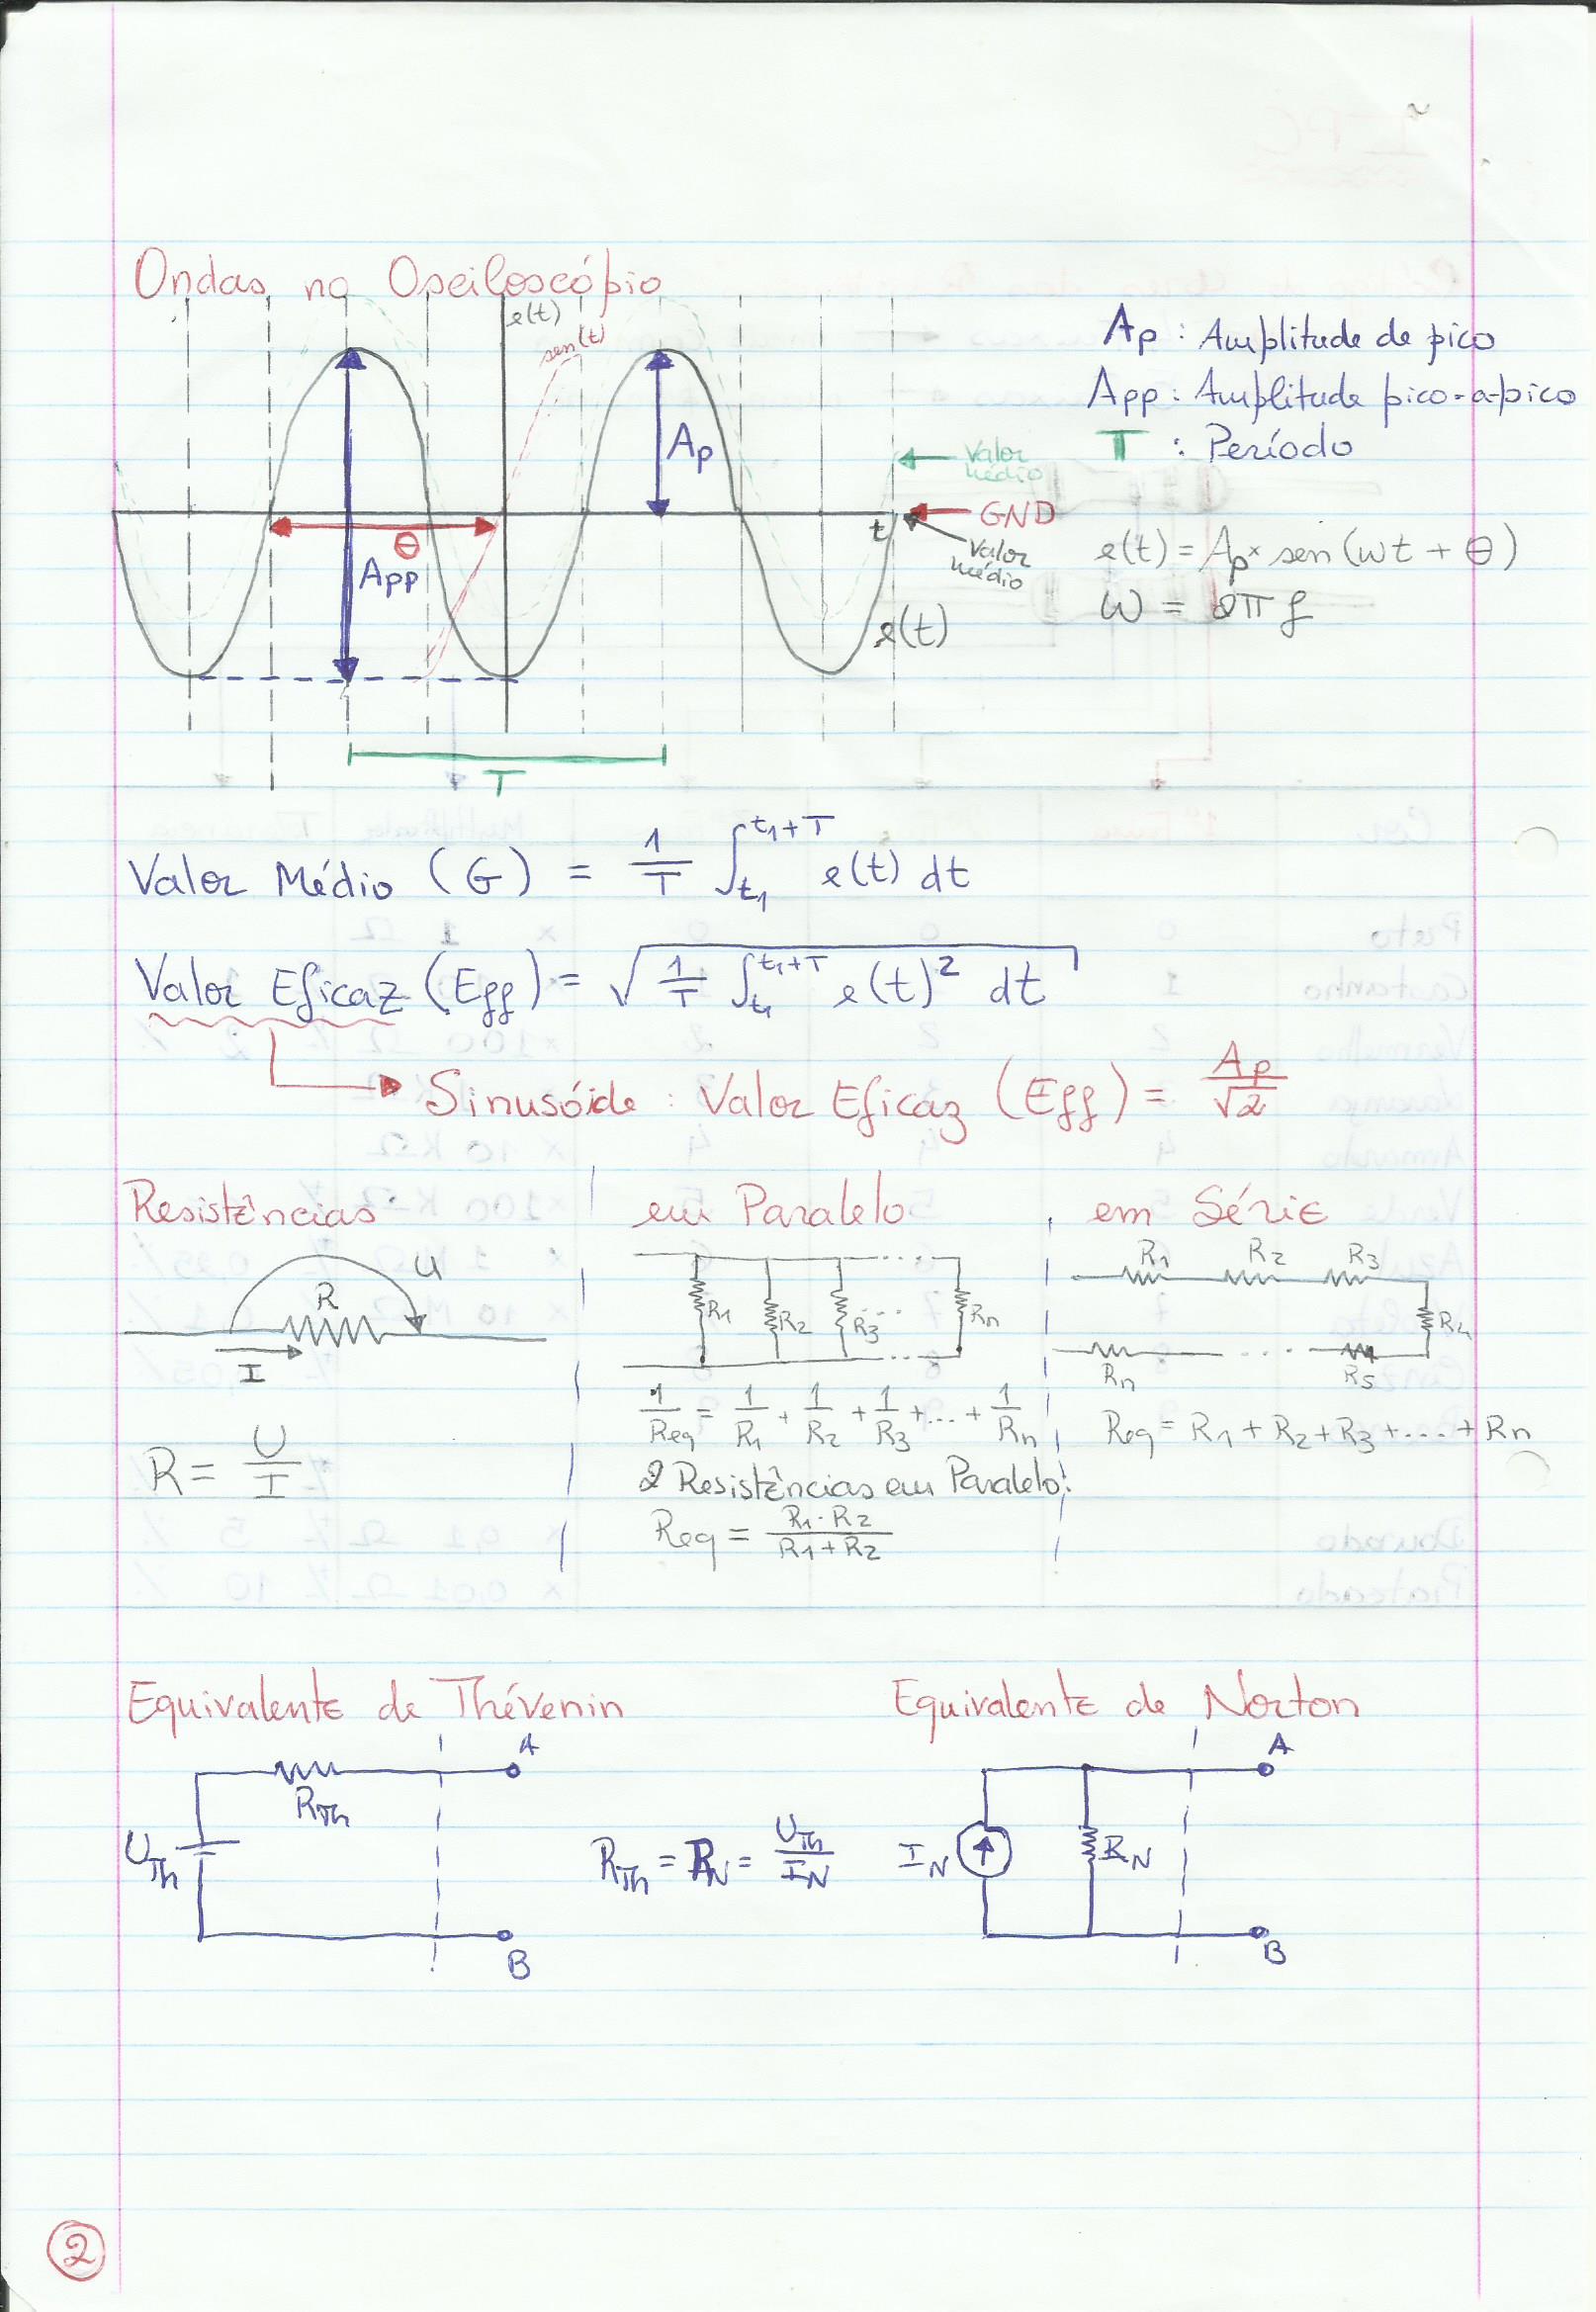 Ondas no Osciloscópio
e(t)
sen(t)
Ap : Amplitude de pico
App : Amplitude pico-a-pico
T : Período
Ap
Valor médio
GND
t
Valor médio
θ
App
e(t) = Ap × sen(ωt + θ)
ω = 2π f
e(t)
T
Valor Médio (G) = 1/T ∫t1^t1+T e(t) dt
Valor Eficaz (Eff) = √(1/T ∫t1^t1+T e(t)² dt)
Sinusóide : Valor Eficaz (Eff) = Ap/√2
Resistências
U
R
I
R = U/I
em Paralelo
R1 R2 R3 .... Rn
1/Req = 1/R1 + 1/R2 + 1/R3 + ... + 1/Rn
2 Resistências em Paralelo:
Req = R1 · R2/R1 + R2
em Série
R1 R2 R3
R4
Rn .... R5
Req = R1 + R2 + R3 + .... + Rn
Equivalente de Thévenin
A
RTh
UTh
B
RTh = RN = UTh/IN
Equivalente de Norton
A
IN
RN
B
2